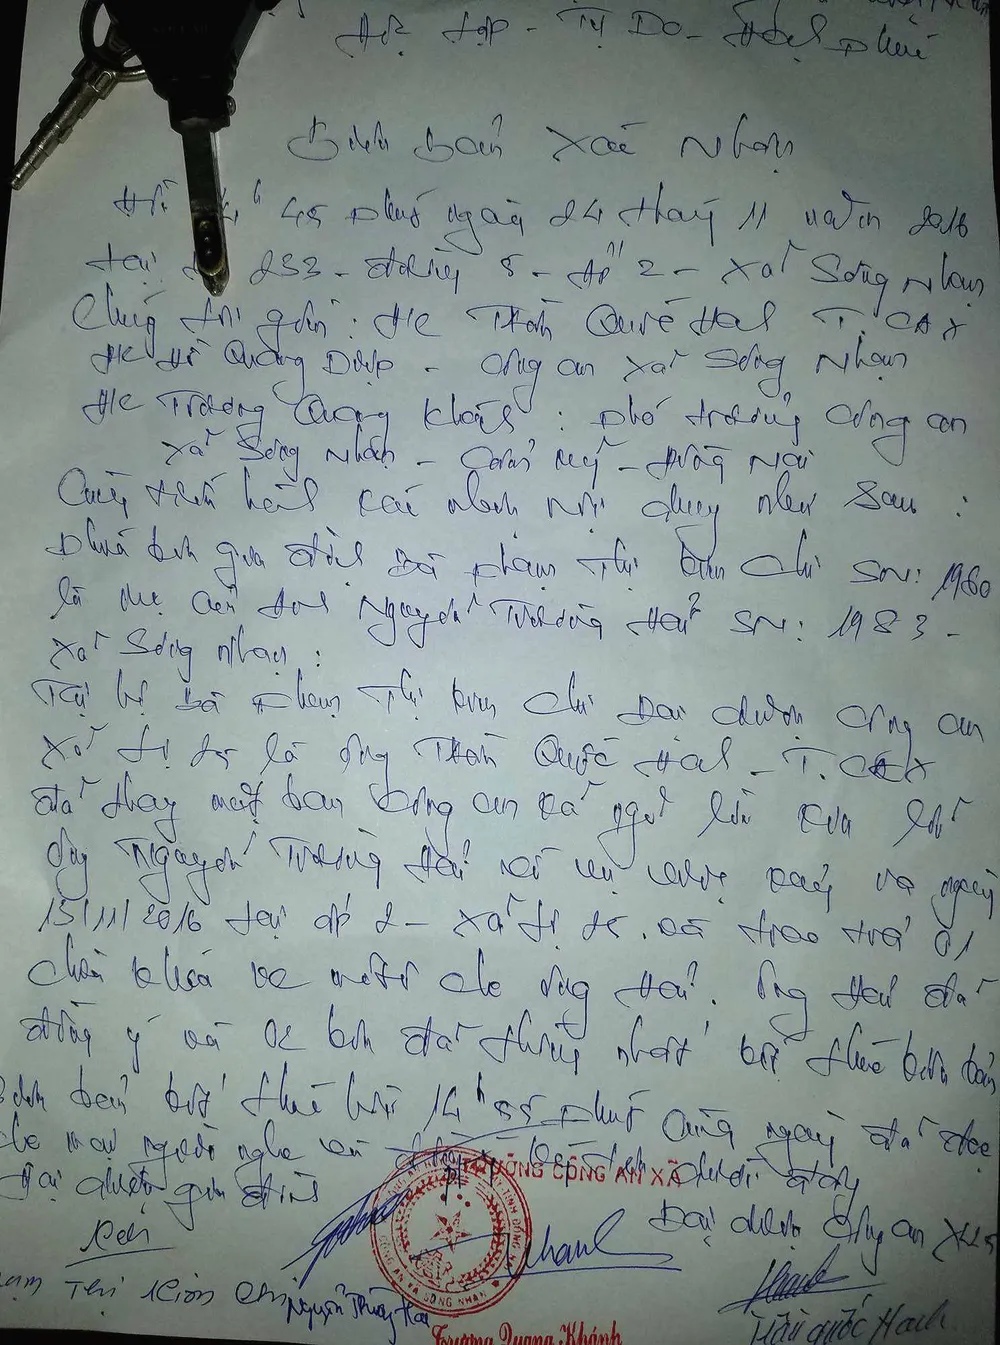 Độc lập - Tự Do - Hạnh Phúc
Biên bản xác nhận
Hồi 14h 45 phút ngày 24 tháng 11 năm 2016
tại 232 - đường 5 - ấp 2 - Xã Sông Nhạn
Chúng tôi gồm: Đ/C Trần Quốc Hanh T. CAX
Đ/C Hồ Quang Diệp - công an xã Sông Nhạn
Đ/C Trương Quang Khánh: phó trưởng công an
xã Sông Nhạn - Cẩm Mỹ - Đồng Nai
Cùng tiến hành xác nhận nội dung như sau:
Phía bên gia đình Bà Phạm Thị Kim Chi SN: 1960
là mẹ của anh Nguyễn Trường Hải SN: 1983 -
xã Sông Nhạn:
Tại hộ bà Phạm Thị Kim Chi Đại diện công an
xã là ông Trần Quốc Hanh - T. CAX
đã thay mặt ban công an xã ngỏ lời xin lỗi
ông Nguyễn Trường Hải về vụ việc xảy ra ngày
15/11/2016 tại ấp 2 - xã và trao trả 01
chìa khóa xe môtô cho ông Hải. Ông Hải đã
đồng ý và 02 bên đã thống nhất kết thúc biên bản
Biên bản kết thúc hồi 14h 55 phút cùng ngày đã đọc
cho mọi người nghe và ký tên dưới đây
Đại diện gia đình
TRƯỞNG CÔNG AN XÃ
Đại diện Công an xã
CÔNG AN XÃ SÔNG NHẠN
Thị Kim Chi
Nguyễn Trường Hải
Trương Quang Khánh
Trần Quốc Hanh